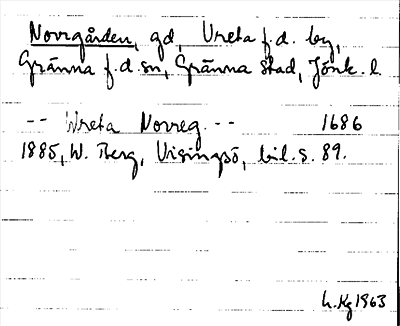 Norrgården, gd, Vreta f.d. by,
Gränna f.d. sn, Gränna stad, Jönk. l.
-- Wreta Norreg. -- 1686
1885, W. Berg, Visingsö, bil. s. 89.
L. Kg 1963